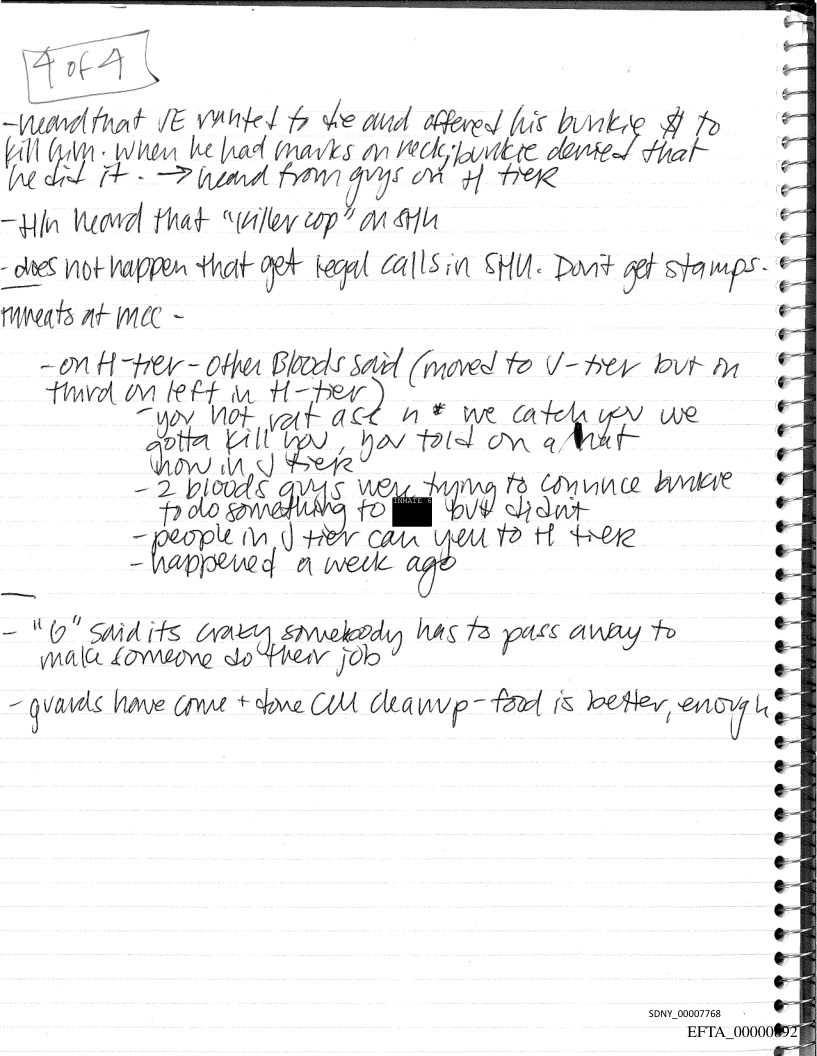 4 of 4
- heard that JE wanted to die and offered his bunkie $ to
kill him. when he had marks on neck, bunkie denied that
he did it. → heard from guys on H tier
- H/n heard that "killer cop" on SHU
- does not happen that get legal calls in SHU. Don't get stamps.
threats at MCC -
- on H-tier - other Bloods said (moved to J-tier but in
third on left in H-tier)
- you hot rat ass n* we catch you we
gotta kill you, you told on a
now in J tier
- 2 bloods guys were trying to convince bunkie
to do something to INMATE 6 but didn't
- people in J tier can yell to H tier
- happened a week ago
- "6" said its crazy somebody has to pass away to
make someone do their job
- guards have come + done cell cleanup - food is better, enough
SDNY_00007768
EFTA_00000892